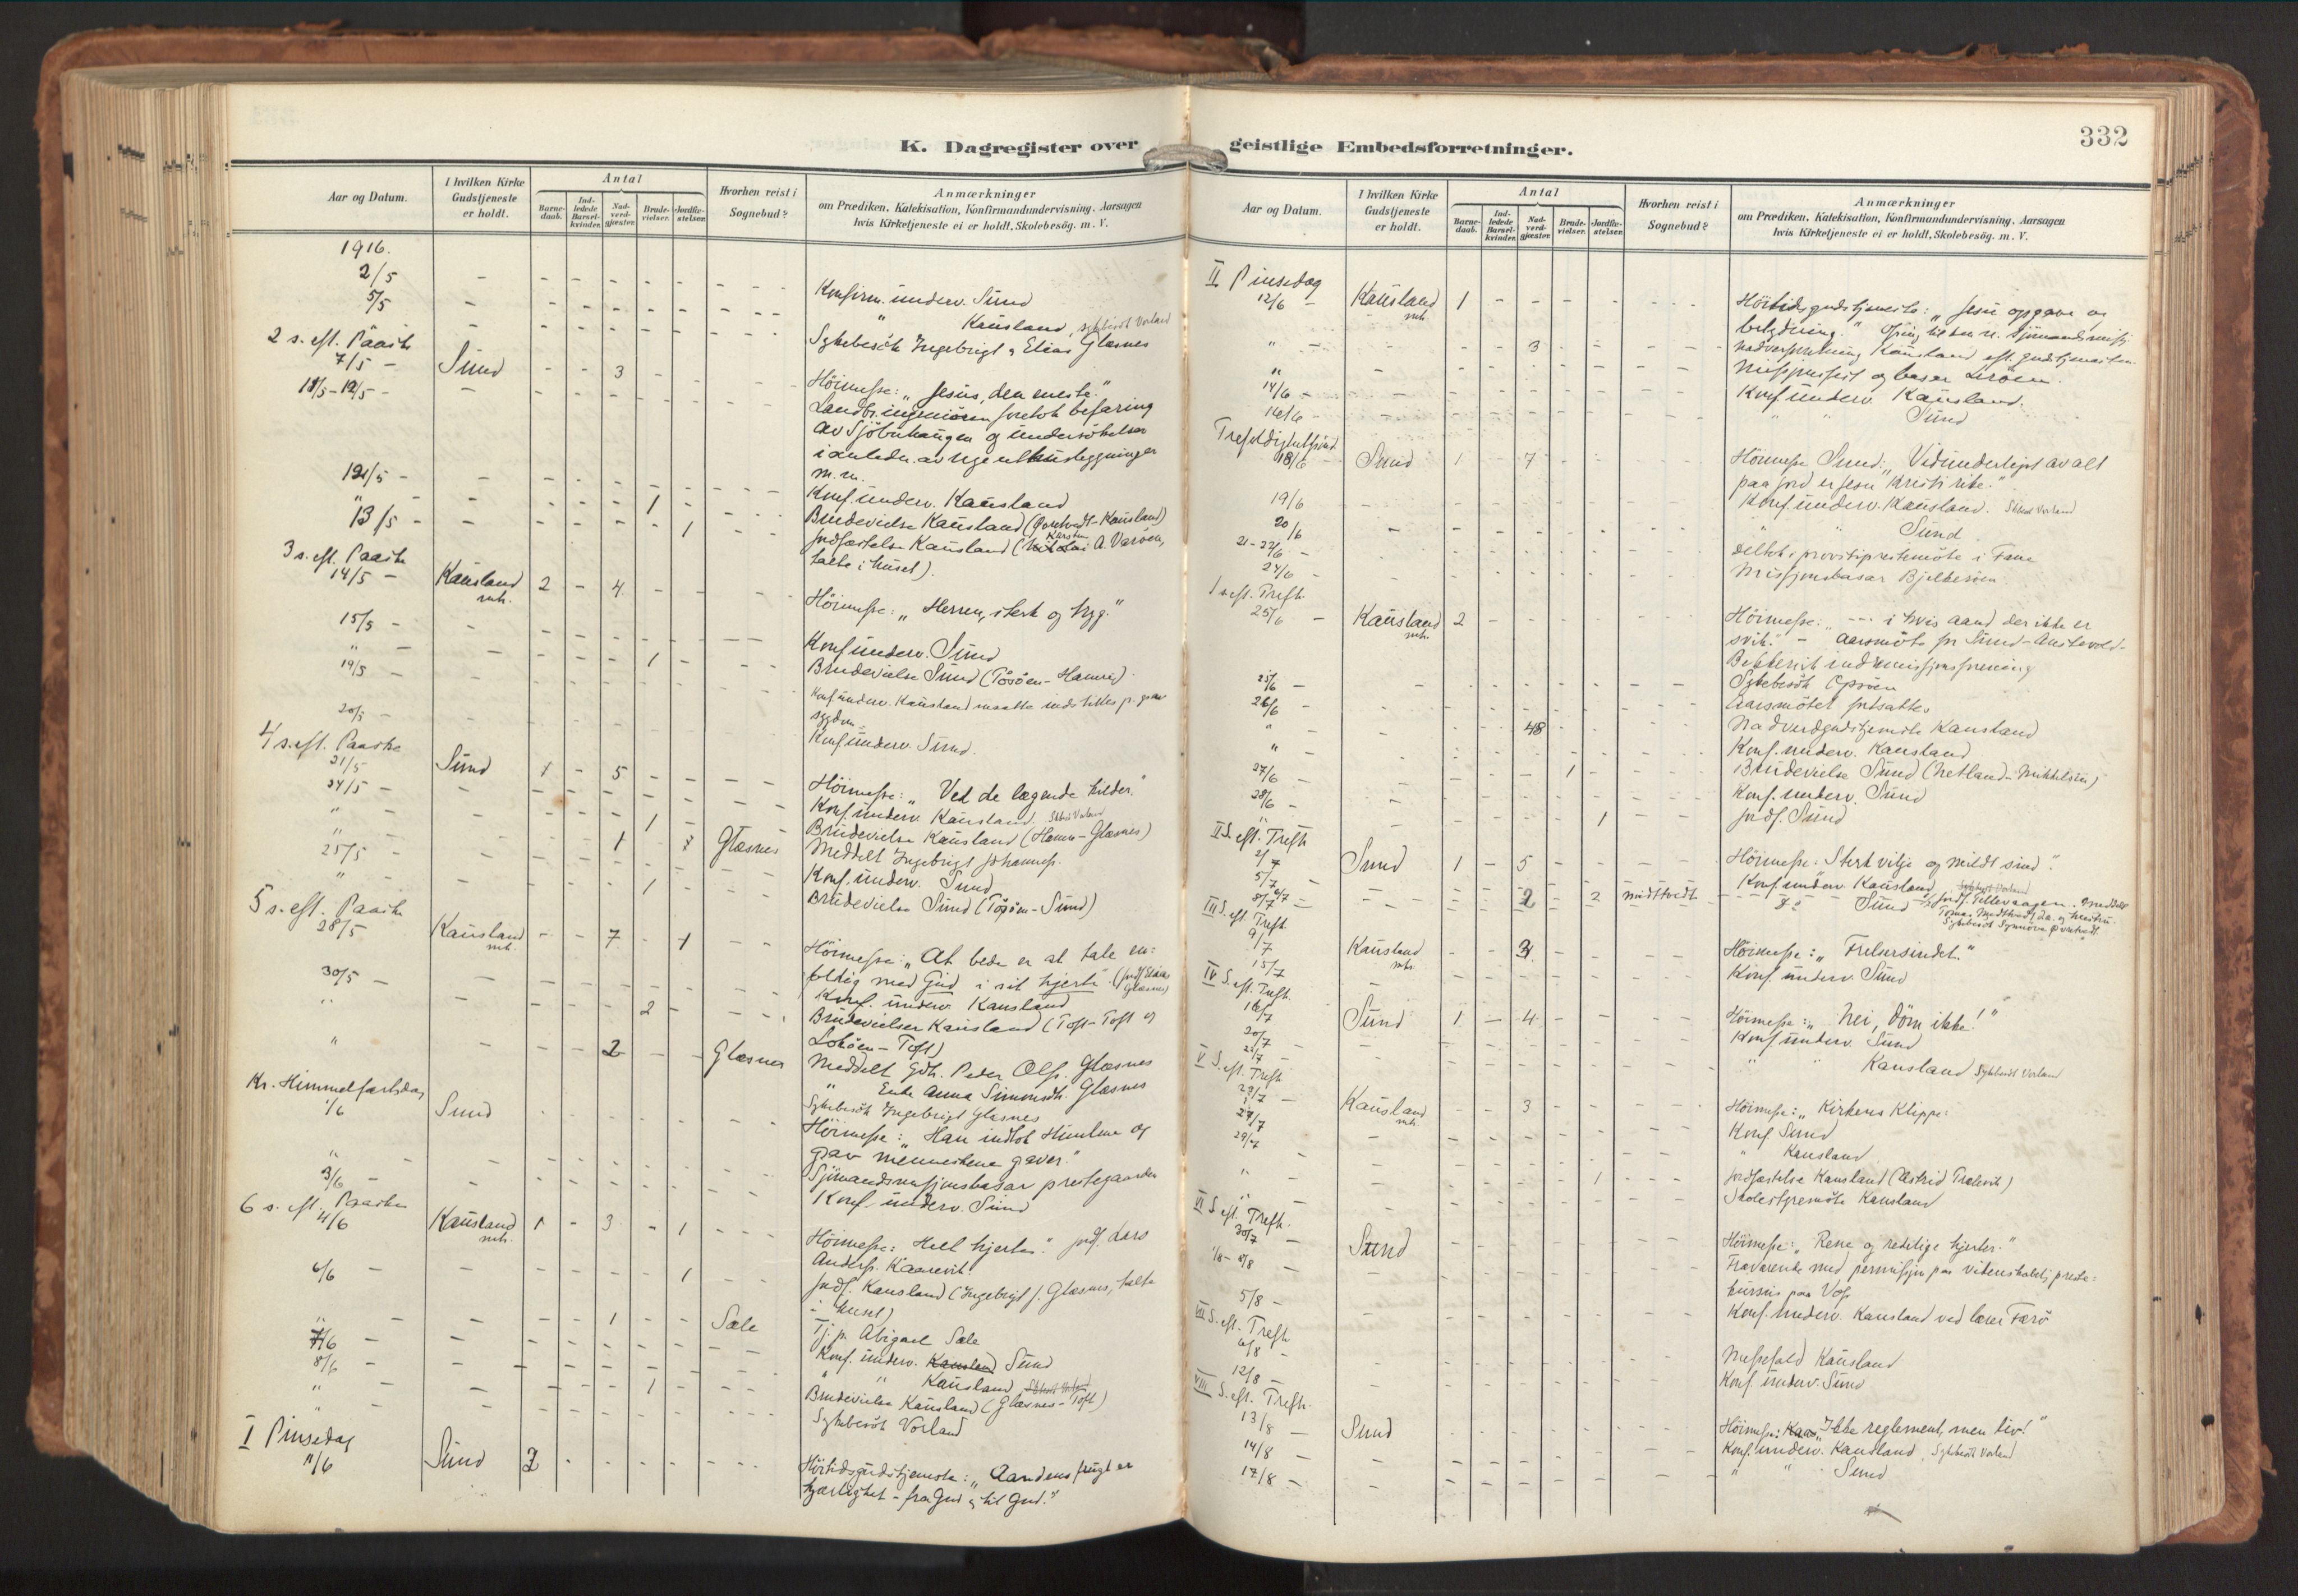 332
K. Dagregister over geistlige Embedsforretninger.
Aar og Datum.
I hvilken Kirke Gudstjeneste er holdt.
Antal
Barne-daab.
Ind-ledede Barsel-kvinder.
Nad-verd-gjæster.
Brude-vielser.
Jordfæ-stelser.
Hvorhen reist i Sognebud?
Anmærkninger
om Prædiken, Katekisation, Konfirmandundervisning, Aarsagen
hvis Kirketjeneste ei er holdt, Skolebesøg. m. V.
1916.
2/5 - Konfirm. underv. Sund
5/5 - " Kausland, sykebesök Vorland
Sykebesök Ingebrigt & Elias Glæsnes
2 s. eft. Paaske
7/5 - Sund - - 3 - Höimesse: "Jesus, den eneste."
11/5-12/5 - Landbr.ingeniören foretok befaring
av Sjöbuhaugen og undersökelser
i anledn. av nye
m. m.
12/5 - Konf. underv. Kausland
" 1 Brudevielse Kausland ( -Kausland)
13/5 - 1 Jordfæstelse Kausland (Karsten A. Varöen,
talte i huset).
3 s. eft. Paaske
14/5 - Kausland 2 - 4 - Höimesse: "Herren, sterk og tryg."
15/5 - Konf underv. Sund
" 1 - Brudevielse Sund (Tösöen-Hamre)
19/5 - Konf underv. Kausland
sygdom
20/5 - Konf underv. Sund.
4 s. eft. Paaske
21/5 Sund 1 - 5 - Höimesse: "Ved de lægende kilder."
24/5 - Konf. underv. Kausland. Vorland
" 1 Brudevielse Kausland (Hamre-Glæsnes)
" 1 Glæsnes Meddelt Ingebrigt Johanness.
25/5 - Konf. underv. Sund
" 1 - Brudevielse Sund (Tösöen-Sund)
5 s. eft. Paaske
28/5 Kausland - - 7 - 1 Höimesse: "At bede er at tale en=
foldig med Gud i sit hjerte." (
Glæsnes)
30/5 - Konf. underv. Kausland
" 2 - Brudevielser Kausland (Toft-Toft og
Loköen-Toft)
" 2 Glæsnes Meddelt Gdb. Peder Ols. Glæsnes
" Enke Anna Simonsdt. Glæsnes
Sykebesök Ingebrigt Glæsnes
Kr. Himmelfartsdag
1/6 Sund - Höimesse: "Han indtok Himlene og
gav menneskene gaver."
" Sjömandsmisjonsbasar prestegaarden
3/6 - Konf. underv. Sund
6 s. eft. Paaske
4/6 Kausland 1 - 3 - 1 Höimesse: Helt hjerte." jordf. Lars
Anders. Kaarevik
6/6 - 1 Jordf. Kausland (Ingebrigt J. Glæsnes, talte
i huset)
" 1 - - Sæle Tj. p. Abigael Sæle
7/6 - Konf. underv. Kausland Sund
8/6 - " " Kausland
" 1 - Brudevielse Kausland (Glæsnes-Toft)
" Sykebesök Vorland
I Pinsedag
11/6 Sund 2 - Höitidsgudstjeneste: "Aandens frugt er
kjærlighet - fra Gud og til Gud."
Aar og Datum.
I hvilken Kirke Gudstjeneste er holdt.
Antal
Barne-daab.
Ind-ledede Barsel-kvinder.
Nad-verd-gjæster.
Brude-vielser.
Jordfæ-stelser.
Hvorhen reist i Sognebud?
Anmærkninger
om Prædiken, Katekisation, Konfirmandundervisning, Aarsagen
hvis Kirketjeneste ei er holdt, Skolebesøg. m. V.
II Pinsedag
12/6 Kausland 1 - Höitidsgudstjeneste: "Jesu opgave og
betydning." til den n. sjömandsmisj.
" 3 - Kausland eft. gudstjenesten.
" Misjonsfest og basar Leröen.
14/6 - Konf underv. Kausland.
16/6 - " " Sund
18/6 - Sund 1 - 7 - Höimesse Sund: "Vidunderligst av alt
paa jord er Jesu Kristi rike."
19/6 Konf. underv. Kausland. Vorland
20/6 " " Sund.
21-22/6 - Deltok i provstiprestemöte i Fane
24/6 - Misjonsbasar Bjelkeröen
1 s. eft. Trefh.
25/6 - Kausland 2 - Höimesse: "--- i hvis aand der ikke er
svik." - Aarsmöte for Sund-Austevold-
indremisjonsforening
25/6 - Sykebesök Opsöen
26/6 - Aarsmötet fortsattes
" 48 Nadverdgudstjeneste Kausland
" Konf. underv. Kausland
27/6 - 1 Brudevielse Sund (Netland-Mikkelsen)
28/6 - Konf. underv. Sund
" 1 Jordf. Sund
II S. eft. Trefh
2/7 Sund 1 - 5 - Höimesse: Sterk vilje og mildt sind."
5/7 - Konf. underv. Kausland
8/7 2 - 2 Midttvedt Do Sund
III S. eft. Trefh.
9/7 Kausland 3 Höimesse: "Frelsersindet."
15/7 Konf. underv. Sund
IV S. eft. Trefh.
16/7 Sund 1 - 4 - Höimesse: "Nei, döm ikke!"
20/7 Konf underv. Sund
" " Kausland Sykebesök Vorland
V S. eft. Trefh
23/7 - Kausland - - 3 Höimesse: "Kirkens Klippe.
27/7 Konf Sund
29/7 " Kausland.
" 1 - Jordfæstelse Kausland (Astrid Trælevik)
" Skolestyremöte Kausland
VI S. eft. Trefh.
30/7 - Sund Höimesse: "Rene og redelige hjerter."
1/8- Fraværende med permisjon paa videnskabelig preste=
kursus paa Voss
5/8 - Konf. underv. Kausland ved lærer Færö
VII S. eft. Trefh
6/8 - Messefald Kausland
12/8 - Konf. underv. Sund
VIII S. eft. Trefh.
13/8 - Sund Höimesse: "Ikke reglement, men liv!"
14/8 - Konf. underv. Kausland. Sykebesök Vorland
17/8 - " " Sund